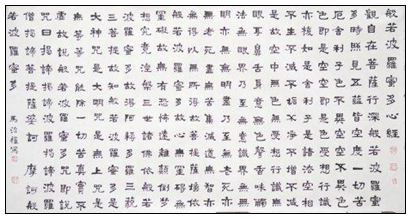 般若波羅蜜多心經
觀自在菩薩行深般若波羅蜜
多時照見五蘊皆空度一切苦
厄舍利子色不異空空不異色
色即是空空即是色受想行識
亦復如是舍利子是諸法空相
不生不滅不垢不淨不增不減
是故空中無色無受想行識無
眼耳鼻舌身意無色聲香味觸
法無眼界乃至無意識界無無
明亦無無明盡乃至無老死亦
無老死盡無苦集滅道無智亦
無得以無所得故菩提薩埵依
般若波羅蜜多故心無罣礙無
罣礙故無有恐怖遠離顛倒夢
想究竟涅槃三世諸佛依般若
波羅蜜多故得阿耨多羅三藐
三菩提故知般若波羅蜜多是
大神咒是大明咒是無上咒是
無等等咒能除一切苦真實不
虛故說般若波羅蜜多咒即說
咒曰揭諦揭諦波羅揭諦波羅
僧揭諦菩提薩婆訶 摩訶般
若波羅蜜多